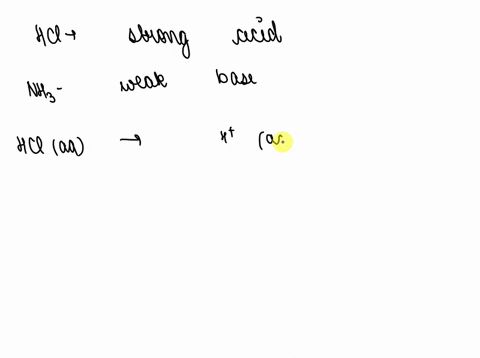 HCl → strong acid
NH₃ - weak base
HCl (aq) → H⁺ (a